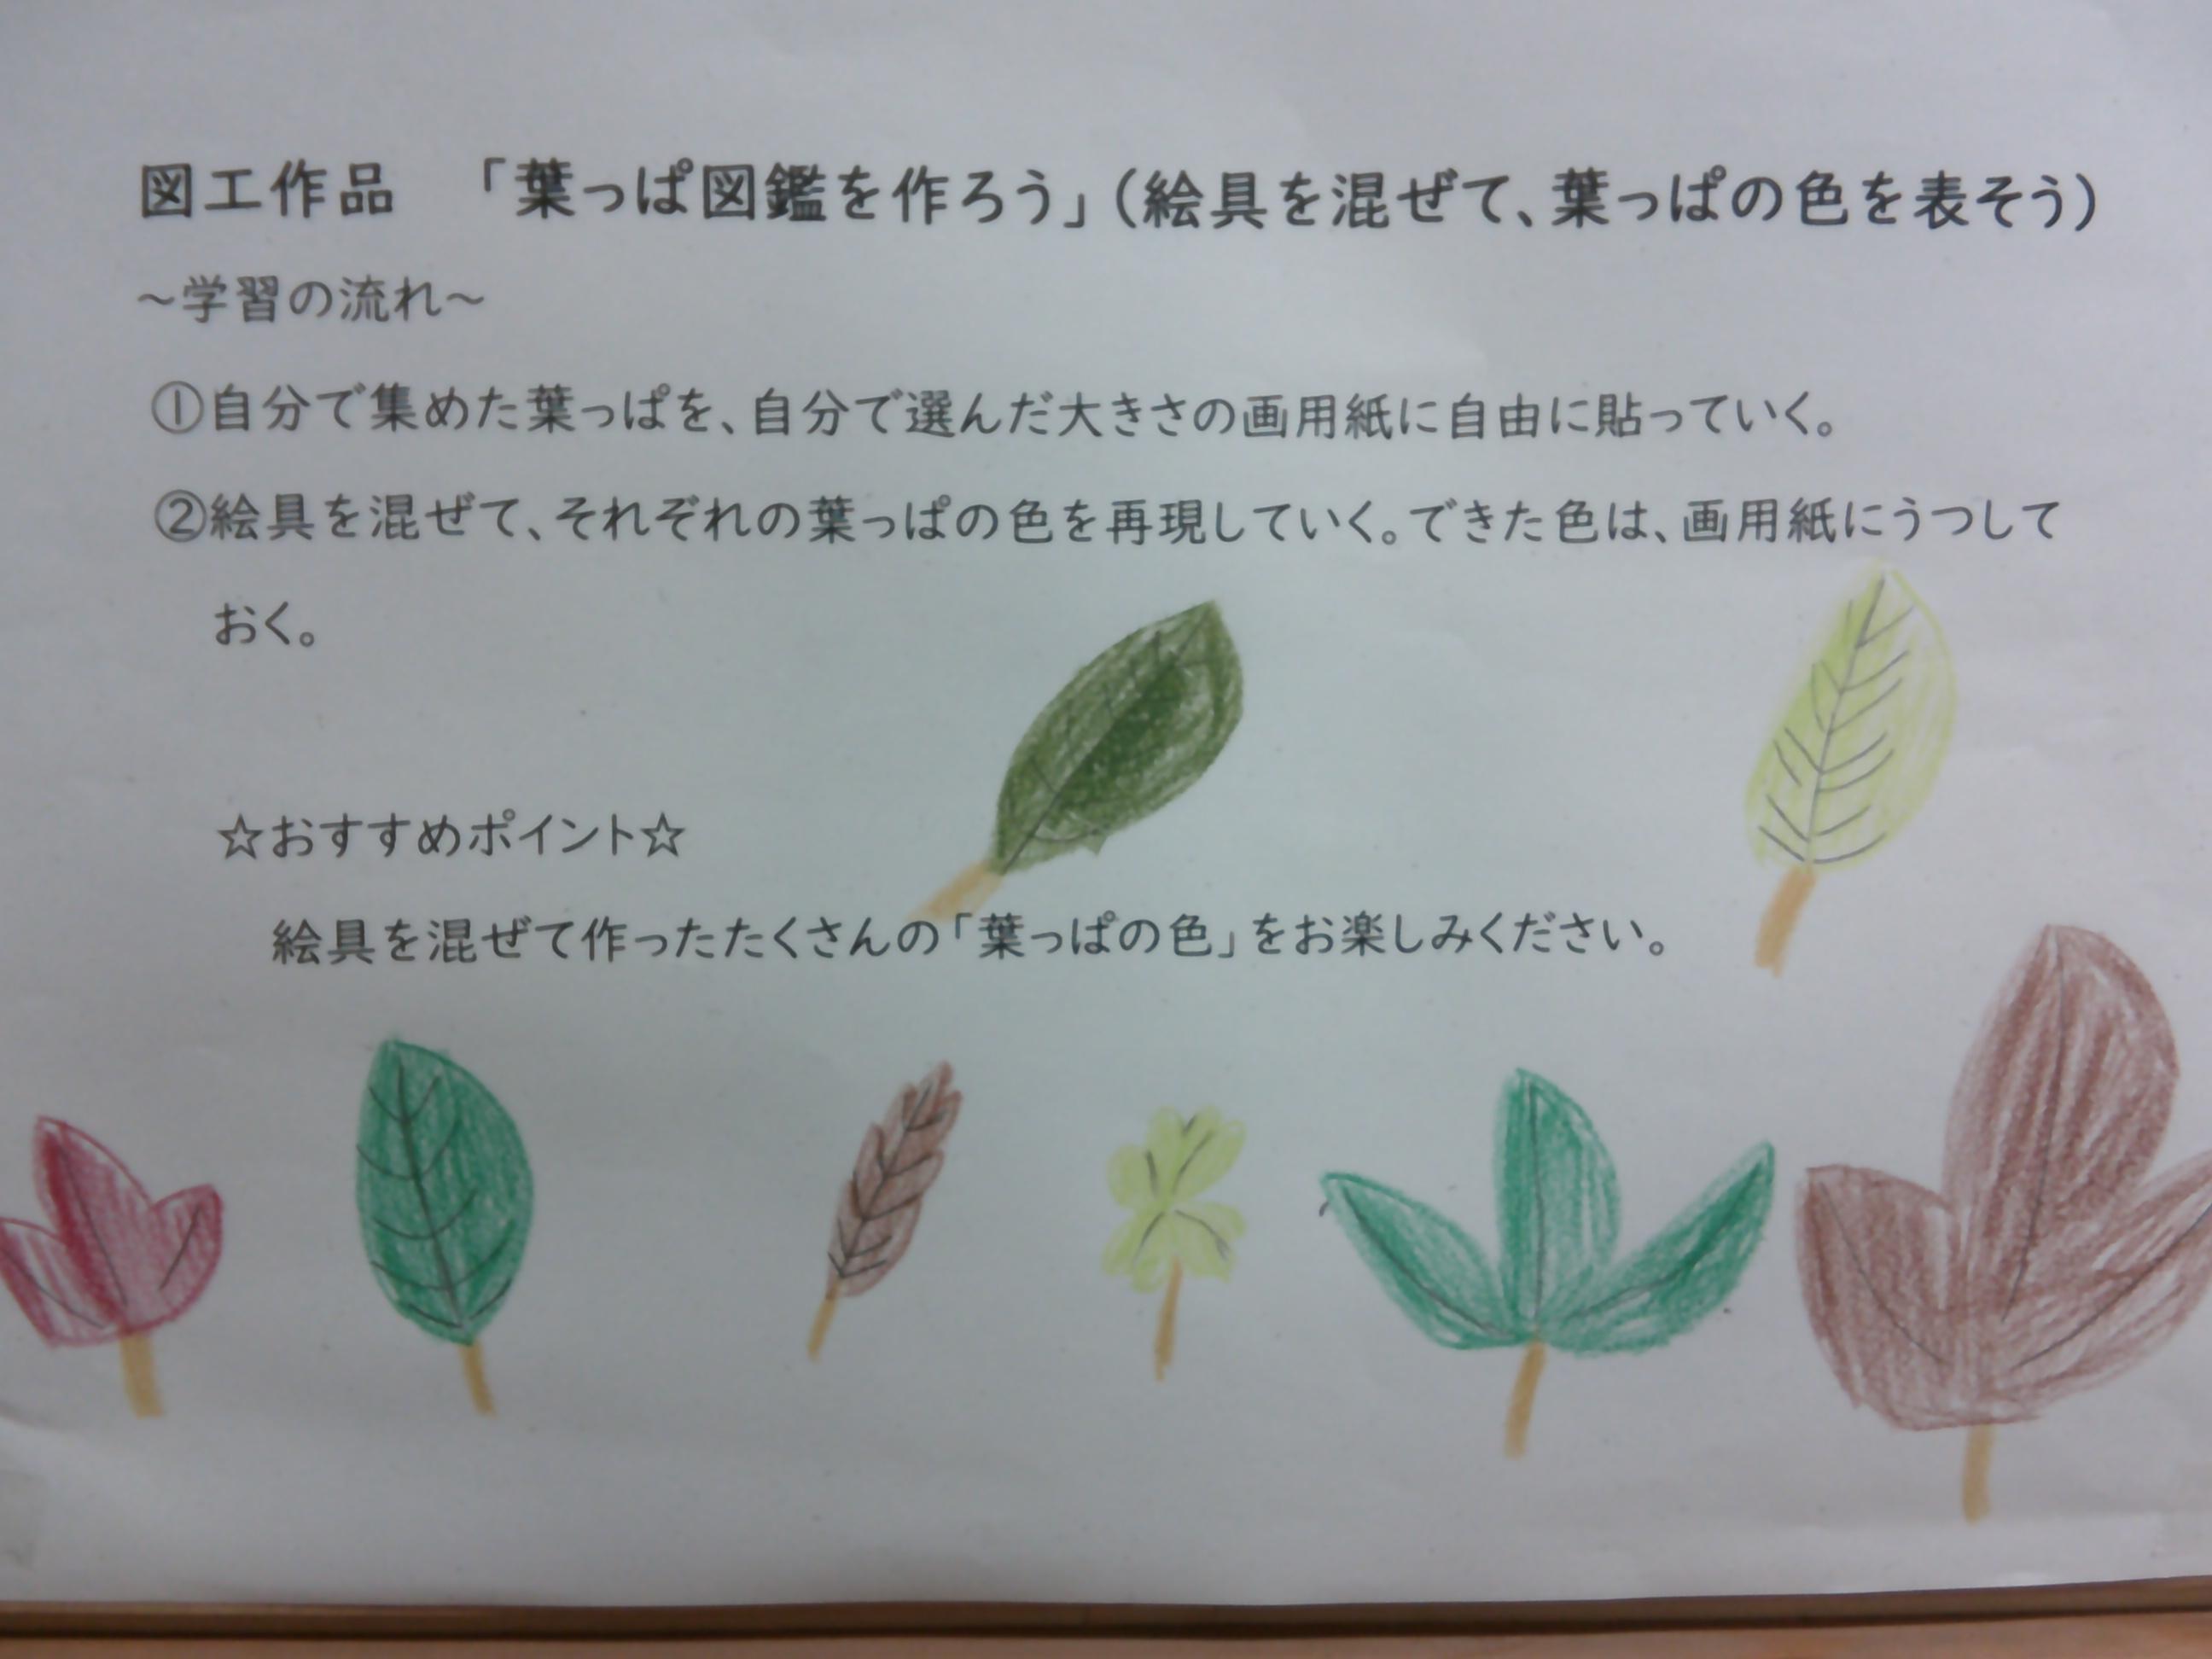 図工作品　「葉っぱ図鑑を作ろう」（絵具を混ぜて、葉っぱの色を表そう）
～学習の流れ～
①自分で集めた葉っぱを、自分で選んだ大きさの画用紙に自由に貼っていく。
②絵具を混ぜて、それぞれの葉っぱの色を再現していく。できた色は、画用紙にうつして
おく。
☆おすすめポイント☆
絵具を混ぜて作ったたくさんの「葉っぱの色」をお楽しみください。